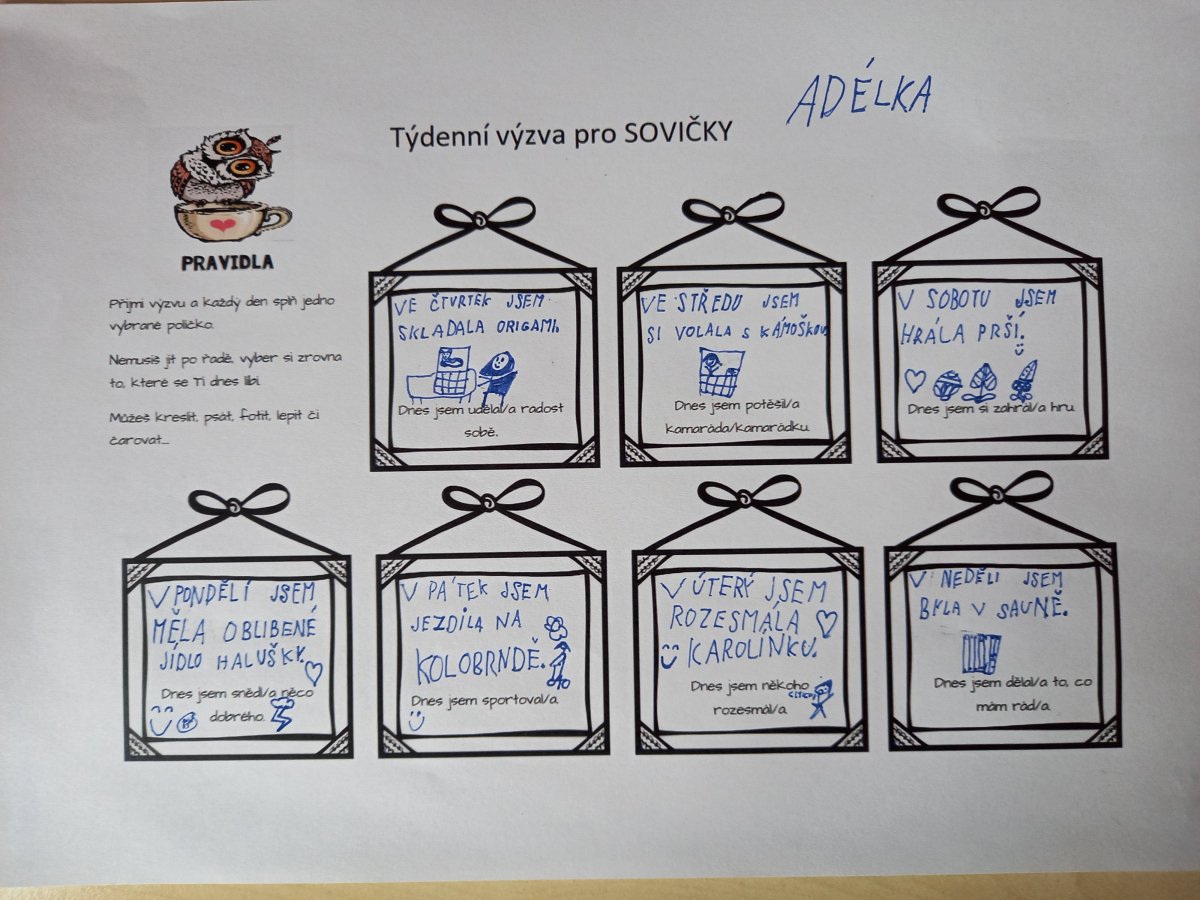 ADÉLKA
Týdenní výzva pro SOVIČKY
PRAVIDLA
Přijmi výzvu a každý den splň jedno
vybrané políčko.
Nemusíš jít po řadě, vyber si zrovna
to, které se Ti dnes líbí.
Můžeš kreslit, psát, fotit, lepit či
čarovat...
VE ČTVRTEK JSEM
SKLADALA ORIGAMI.
Dnes jsem udělal/a radost
sobě.
VE STŘEDU JSEM
SI VOLALA S KÁMOŠKOU
Dnes jsem potěšil/a
kamaráda/kamarádku.
V SOBOTU JSEM
HRÁLA PRŠÍ.
Dnes jsem si zahrál/a hru.
V PONDĚLÍ JSEM
MĚLA OBLIBENÉ
JÍDLO HALUŠKY.
Dnes jsem snědl/a něco
dobrého.
V PÁTEK JSEM
JEZDILA NA
KOLOBRNDĚ.
Dnes jsem sportoval/a.
V ÚTERÝ JSEM
ROZESMÁLA
KAROLÍNKU.
Dnes jsem někoho
rozesmál/a.
V NEDĚLI JSEM
BYLA V SAUNĚ.
Dnes jsem dělal/a to, co
mám rád/a.